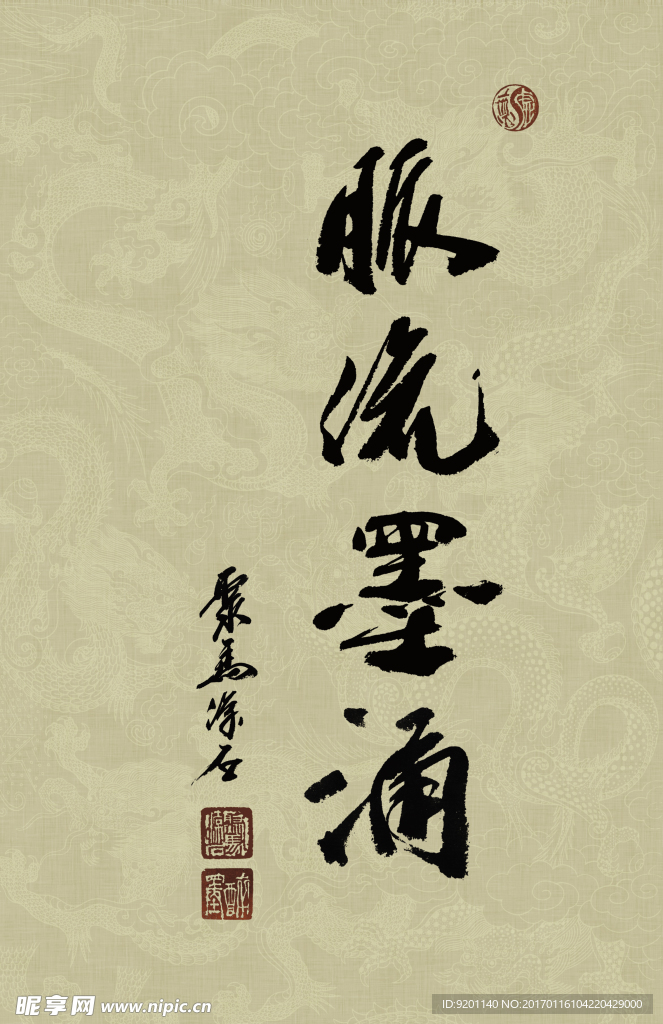 脈流墨涌
聚馬滌石
昵享网 www.nipic.cn
ID:9201140 NO:20170116104220429000